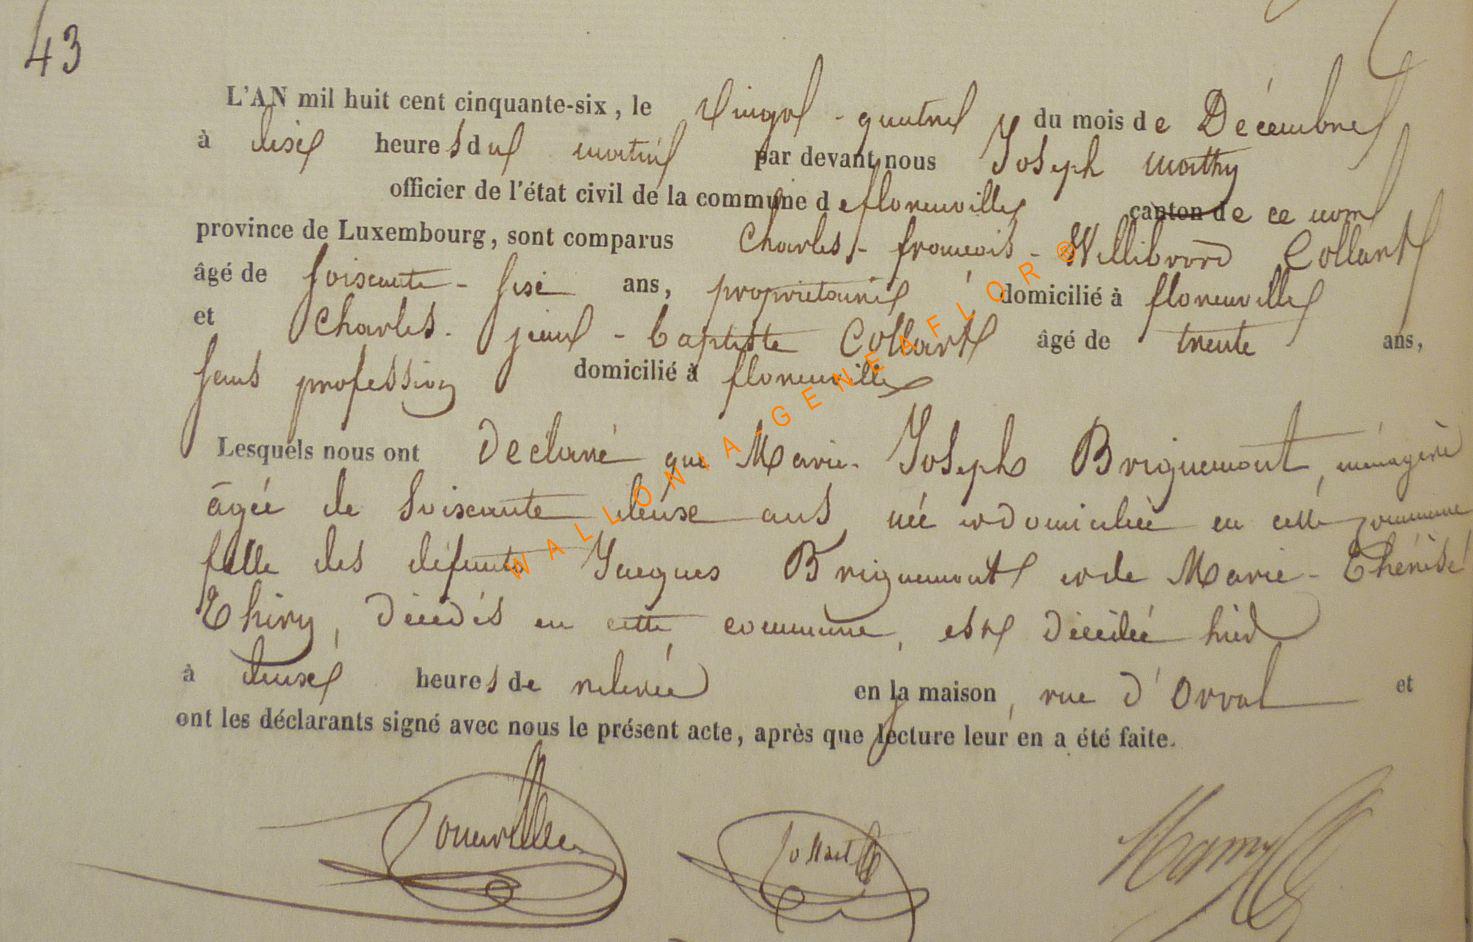 43
L'AN mil huit cent cinquante-six, le Vingt-quatre du mois de Décembre
à dix heures du matin par devant nous Joseph
officier de l'état civil de la commune de florenville canton de ce nom
province de Luxembourg, sont comparus Charles-françois-Willibrord Collart
âgé de soixante-six ans, propriétaire domicilié à florenville
et Charles-jean-baptiste Collart âgé de trente ans,
sans profession domicilié à florenville
Lesquels nous ont Déclaré que Marie-Joseph Briquemont, ménagère
âgée de soixante deux ans, née et domiciliée en cette commune
fille des défunts Jacques Briquemont et de Marie-Thérèse
Thiry, décédés en cette commune, est décédée hier
à deux heures de relevée en la maison, rue d'Orval et
ont les déclarants signé avec nous le présent acte, après que lecture leur en a été faite.
Collart
WALLONIA-GENEAFLOR®